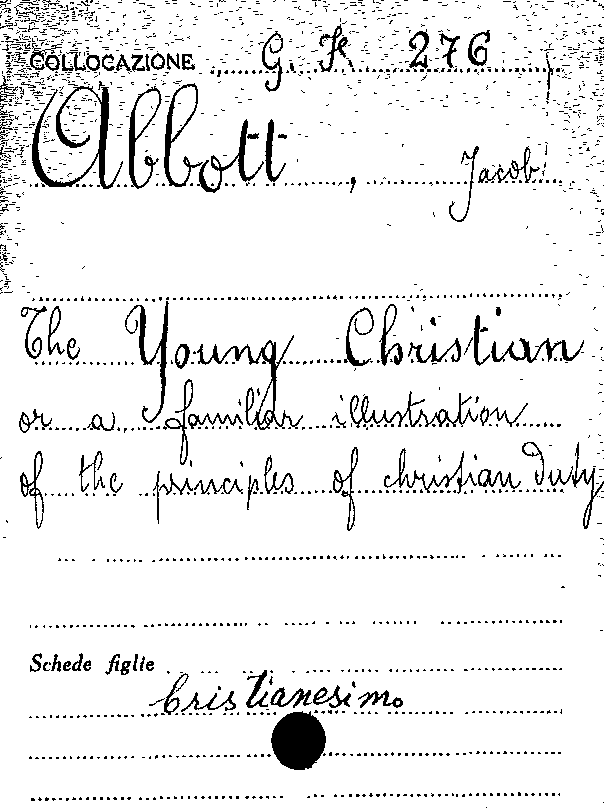 COLLOCAZIONE G. K 276
Abbott, Jacob
The Young Christian
or a familiar illustration
of the principles of christian duty
Schede figlie
Cristianesimo